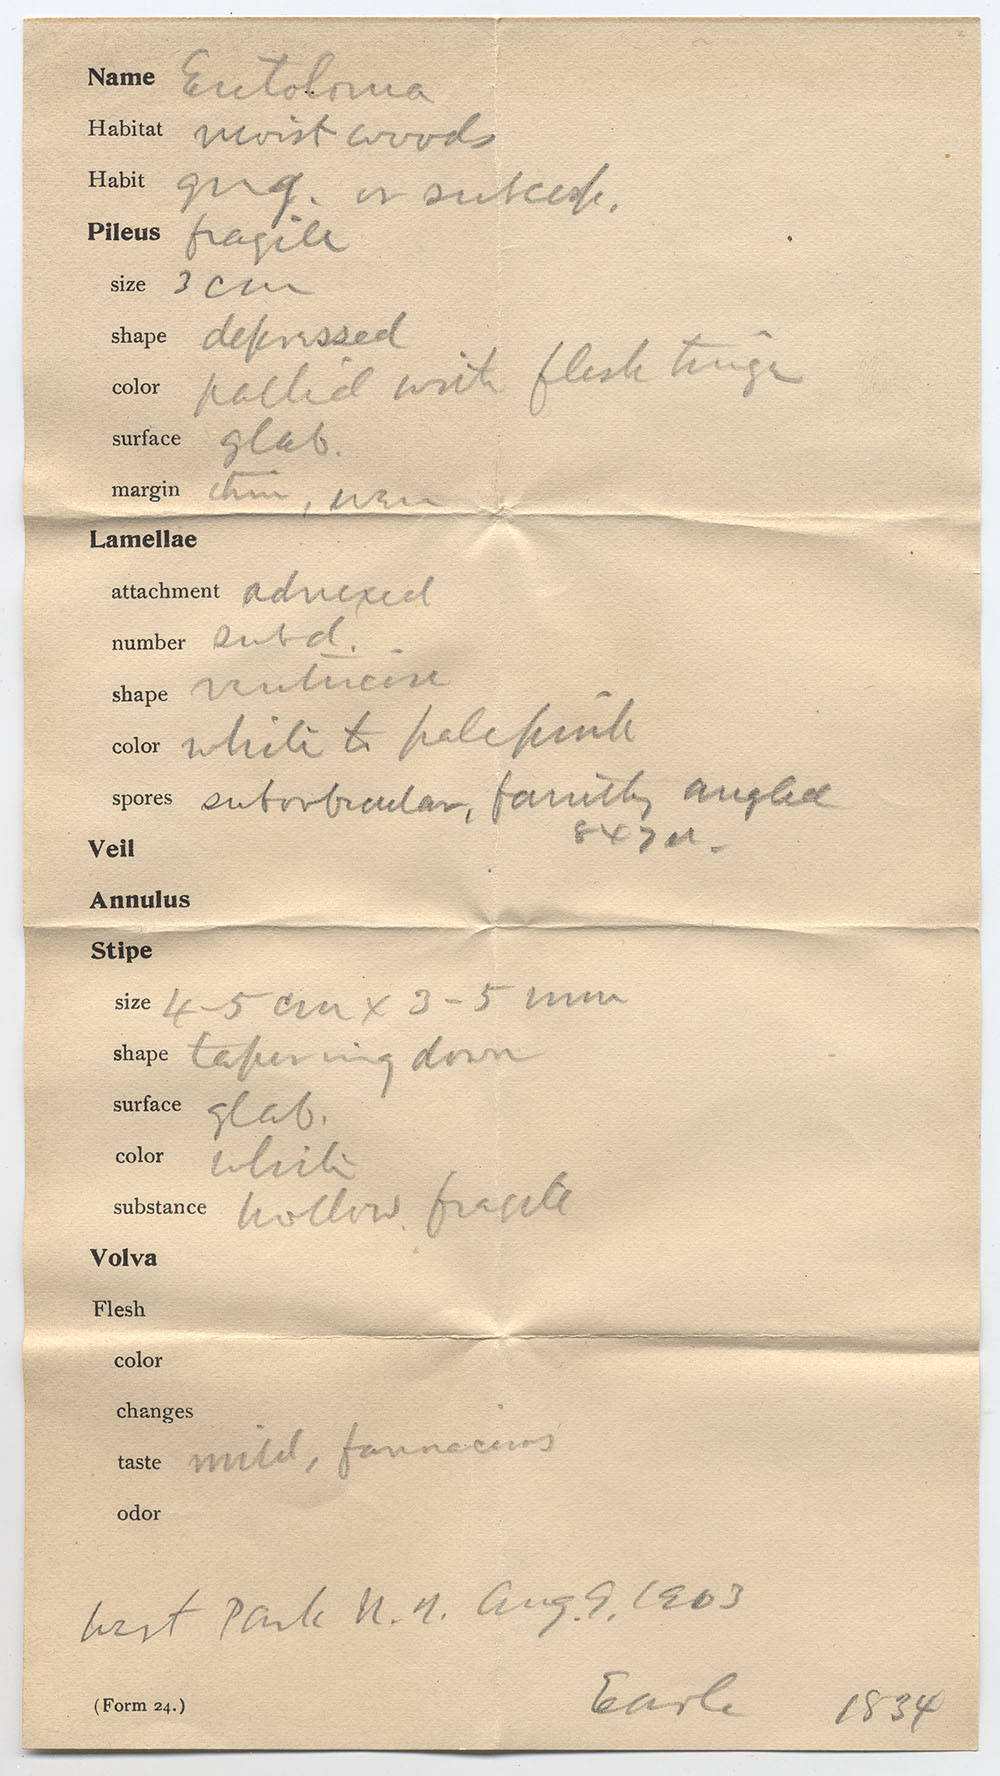 Name Entoloma
Habitat moist woods
Habit greg. or subcesp.
Pileus fragile
size 3 cm
shape depressed
color pallid with flesh tinge
surface glab.
margin thin, even
Lamellae
attachment adnexed
number subd.
shape ventricose
color white to pale pink
spores suborbicular, faintly angled
8 x 7 u.
Veil
Annulus
Stipe
size 4-5 cm x 3-5 mm
shape tapering down
surface glab.
color white
substance hollow, fragile
Volva
Flesh
color
changes
taste mild, farinaceous
odor
West Park N.Y. Aug. 9, 1903
(Form 24.) Earle 1834